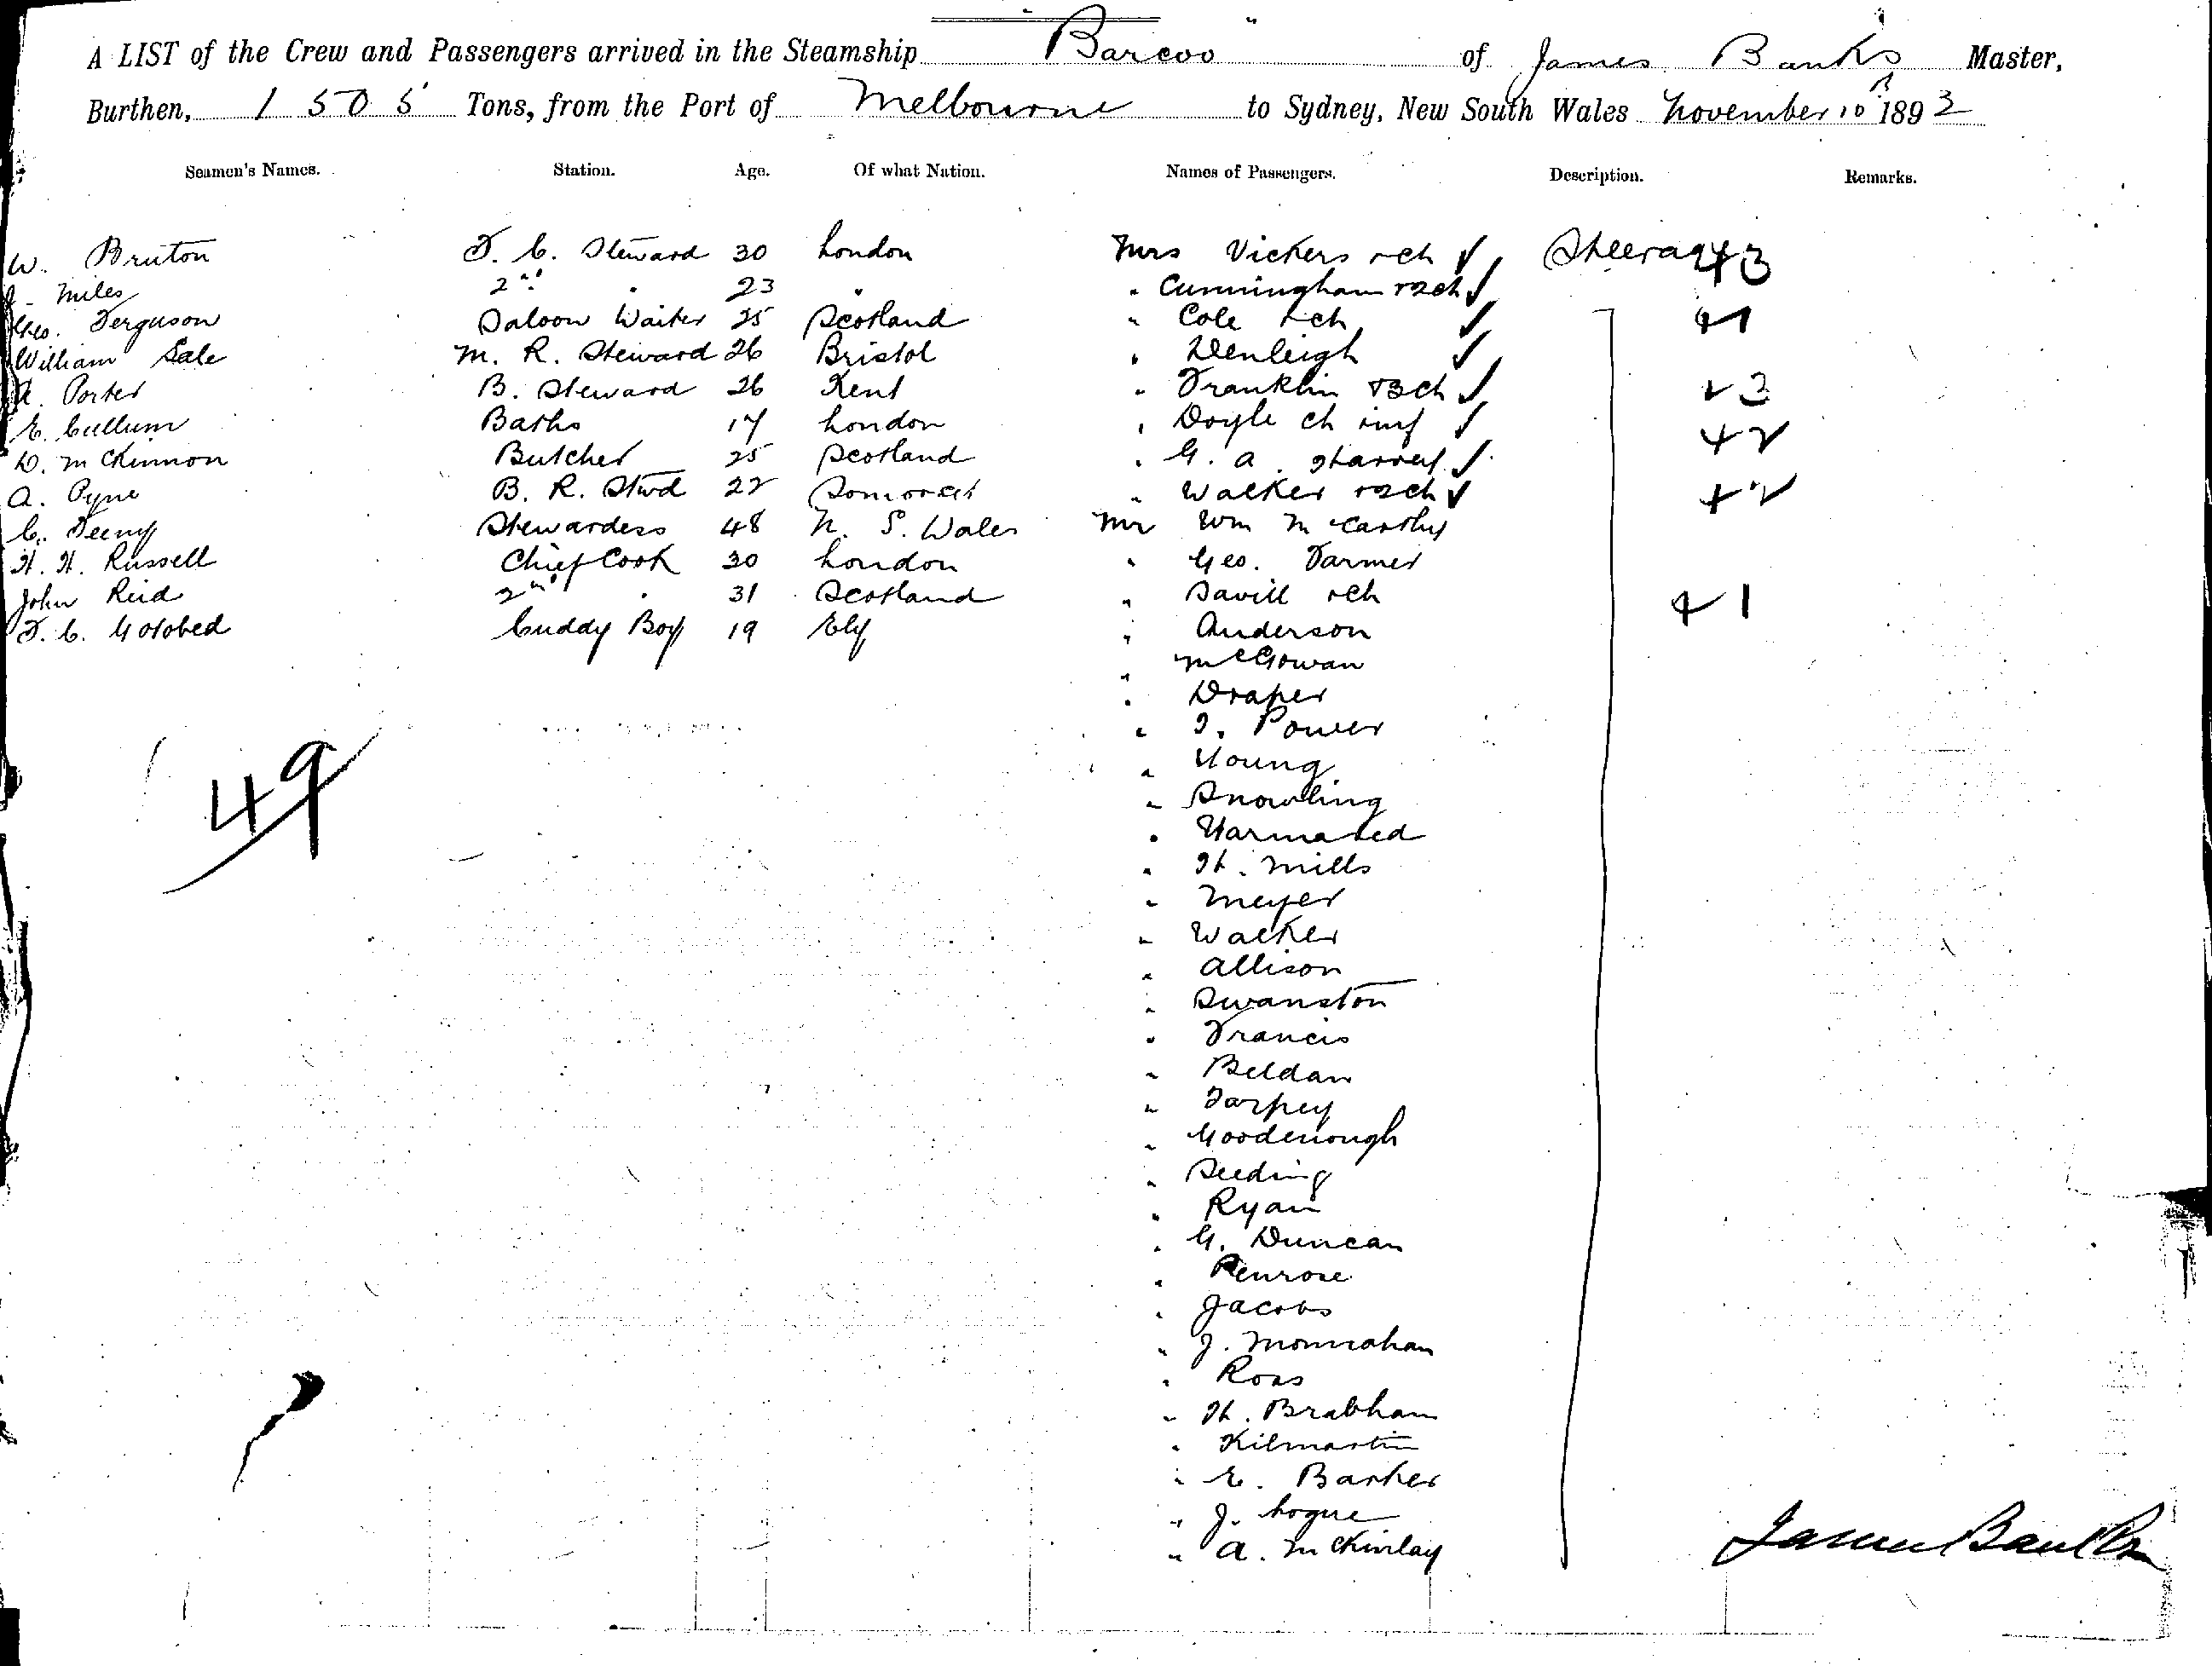 " Barcoo "
A LIST of the Crew and Passengers arrived in the Steamship Barcoo of James Banks Master,
Burthen, 1505 Tons, from the Port of Melbourne to Sydney, New South Wales November 10th 1893
Seamen's Names. Station. Age. Of what Nation. Names of Passengers. Description. Remarks.
W. Bruton F. C. Steward 30 London Mrs Vickers & ch ✓ Steerage + 3
J. Miles 2nd " 23 " " Cunningham & 2ch ✓
Geo. Ferguson Saloon Waiter 25 Scotland " Cole & ch ✓ + 1
William Sale M. R. Steward 26 Bristol " Denleigh ✓
A. Porter B. Steward 26 Kent " Franklin & 3ch ✓ + 3
E. Cullum Baths 17 London " Doyle ch inf ✓ + 2
D. McKinnon Butcher 25 Scotland " G. A. ✓
A. Pyne B. R. Stwd 22 Somerset " Walker & 2ch ✓ + 2
C. Feeny Stewardess 48 N. S. Wales Mr Wm McCarthy
H. H. Russell Chief Cook 30 London " Geo. Farmer
John Reid 2nd " 31 Scotland " Savill & ch + 1
F. C. Gotobed Cuddy Boy 19 Ely " Anderson
" McGowan
" Draper
" T. Power
" Young
" Snowling
"
" H. Mills
" Meyer
" Walker
" Allison
" Swanston
" Francis
" Beldan
" Tarpey
" Goodenough
" Seeding
" Ryan
" G. Duncan
" Penrose
" Jacobs
" J. Monnahan
" Ross
" H. Brabham
" Kilmartin
" E. Barker
" J. Logue
" A. McKinlay
49
James Banks